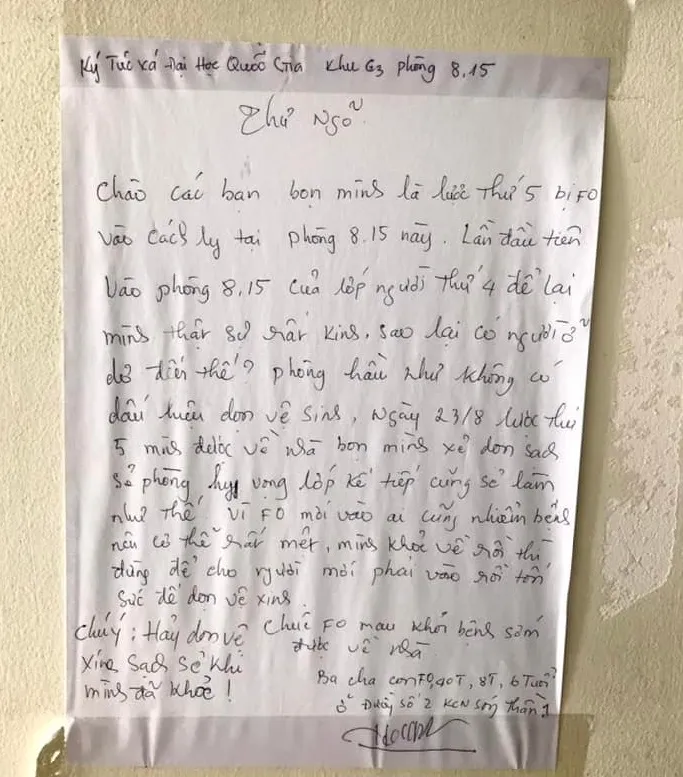 Ký Túc xá Đại Học Quốc Gia khu G3 phòng 8.15
Thư Ngõ
Chào các bạn bọn mình là lược thứ 5 bị F0
vào cách ly tại phòng 8.15 này. Lần đầu tiên
vào phòng 8.15 của lớp người thứ 4 để lại
mình thật sự rất kinh, sao lại có người ở
dơ đến thế? phòng hầu như không có
dấu hiệu dọn vệ sinh, Ngày 23/8 lược thứ
5 mình được về nhà bọn mình xẻ dọn sạch
sẻ phòng hy vọng lớp kế tiếp cũng sẻ làm
như thế. Vì F0 mới vào ai cũng nhiễm bệnh
nên có thể rất mệt, mình khoẻ về rồi thì
đừng để cho người mới phải vào rồi tốn
sức để dọn vệ xinh.
Chúý: Hảy dọn vệ
xinh sạch sẻ khi
mình đã khoẻ!
Chúc F0 mau khỏi bệnh sớm
được về nhà
Ba cha con F0, 40T, 8T, 6 Tuổi
ở Đường số 2 KCN sóng thần 1